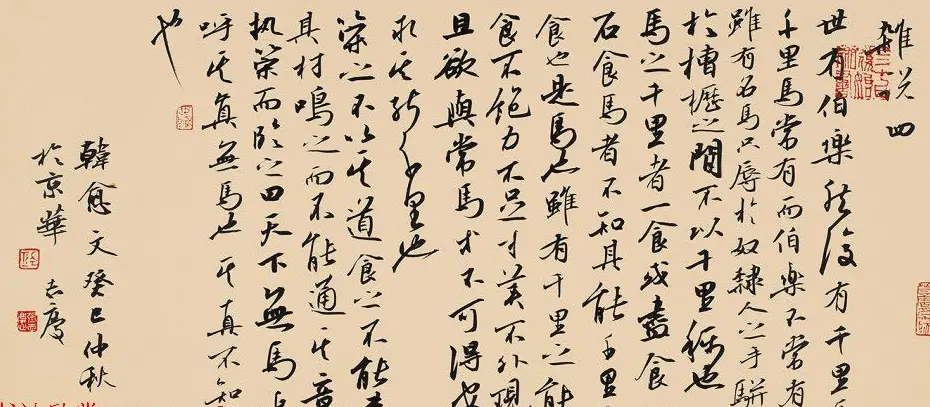 雜说四
世有伯樂然後有千里
千里馬常有而伯樂不常有
雖有名馬只辱於奴隸人之手駢
於槽櫪之間不以千里稱也
馬之千里者一食或盡食
石食馬者不知其能千里
食也是馬也雖有千里之能
食不飽力不足才美不外現
且欲與常馬等不可得也
求其能千里也
策之不以其道食之不能盡
其材鳴之而不能通其意
执策而臨之曰天下無馬
呼其真無馬也其真不知
也
韓愈文癸巳仲秋
於京華